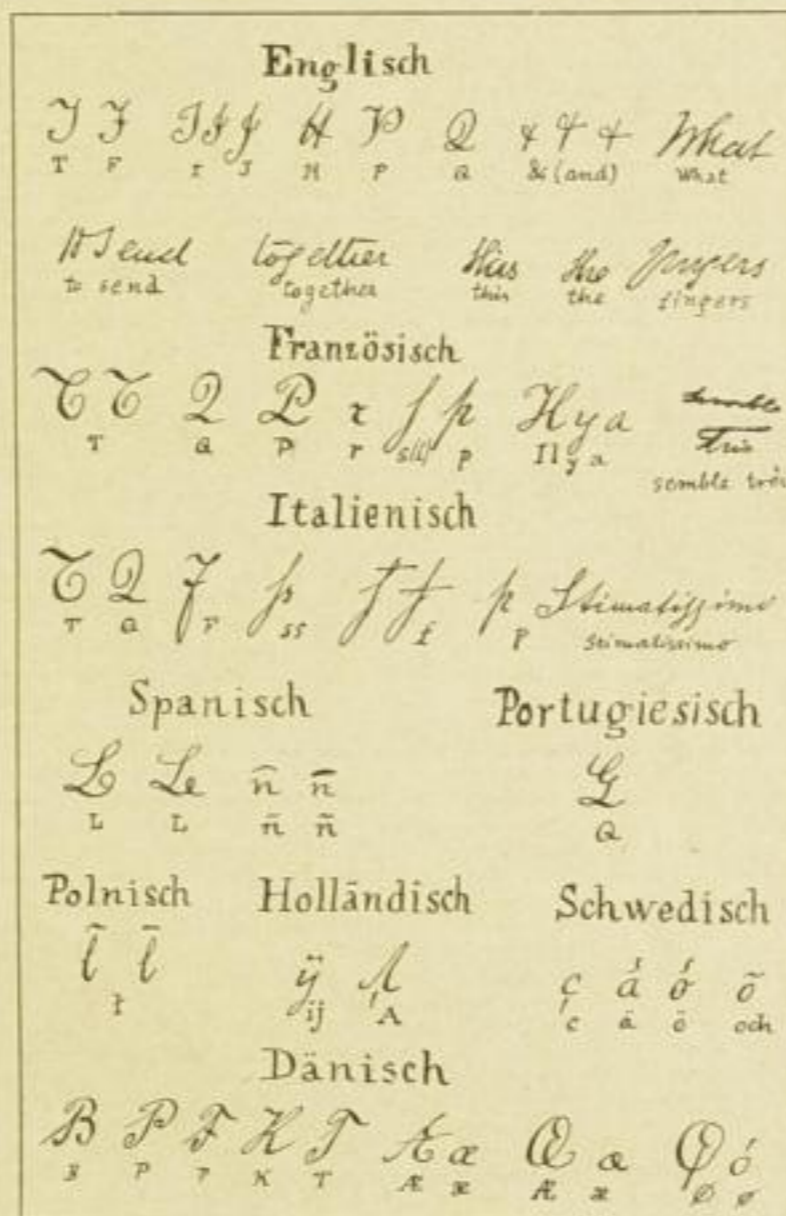 Englisch
T F I I J H P Q & & & What
T F I J H P Q & (and) What
to send together this the fingers
to send together this the fingers
Französisch
T T Q P r s p Il y a semble très
T Q P r s(ß) p Il y a semble trè
Italienisch
T Q F ss f f p Stimatissimo
T Q F ss f p stimatissimo
Spanisch Portugiesisch
L L ñ n̄ Q
L L ñ ñ Q
Polnisch Holländisch Schwedisch
l̃ l̄ ÿ A c á ó õ
ł ij A c ä ö och
Dänisch
B P F K T Æ æ Œ œ Ø ó
B P F K T Æ æ Æ æ Ø ø